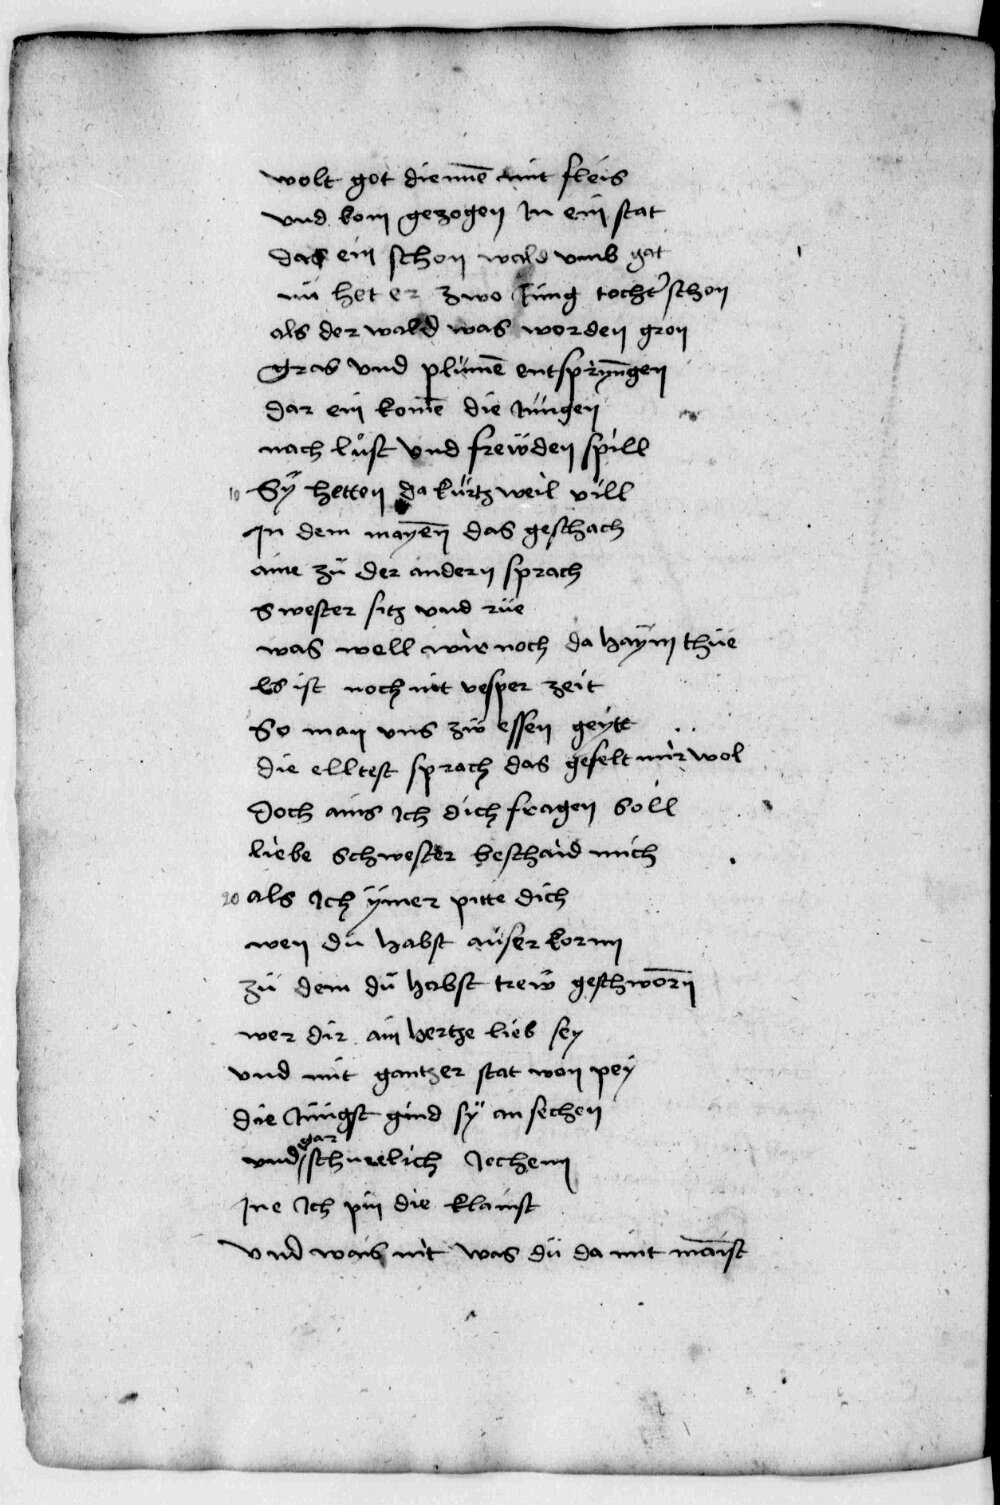 wolt got diennē mit fleis
vnd kom gezogen In ein stat
das ein schon wald vmb gat
nü het er zwo Jüng tocht̕ schon
als der wald was worden gron
gras vnd plümē entsprūngen
dar ein komē die Jüngen
nach lüst vnd frewden spill
10 Sÿ hetten da kürtzweil vill
In dem mayen̄ das geschach
aine zü der andern sprach
swester sitz vnd rüe
was well wir noch da haÿm thüe
Es ist noch nit vesper zeit
So man vns zw essen geytt
die elltest sprach das gefelt mir wol
Doch ains Ich dich fragen soll
liebe schwester beschaid mich
20 als Ich ÿmer pitte dich
wen dü habst aüserkornn
zü dem dü habst trew geschworn̄
wer dir ain hertze lieb sey
vnd mit gantzer stat won pey
die Jüngst gund sÿ an sechen
vnd gar schnelich Jechenn
Ine Ich pin die klainst
vnd wais nit was dü da mit māist